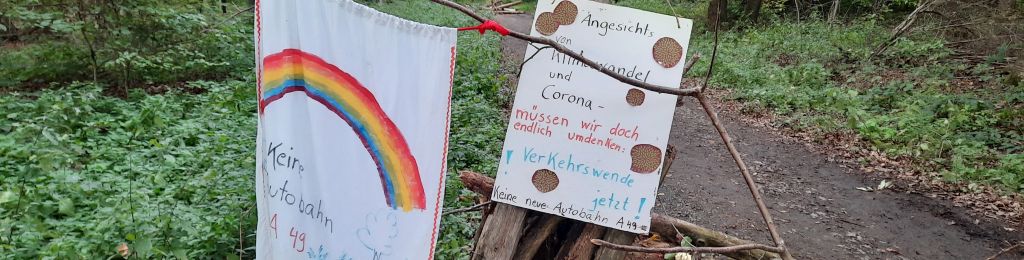 Keine
Autobahn
A 49
Angesichts
von
Klimawandel
und
Corona-
müssen wir doch
endlich umdenken:
! Verkehrswende
jetzt !
Keine neue Autobahn A 49